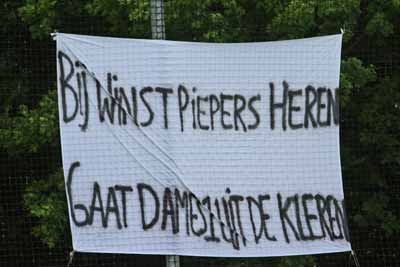 BIJ WINST PIEPERS HEREN
GAAT DAMES 1 UIT DE KLEREN